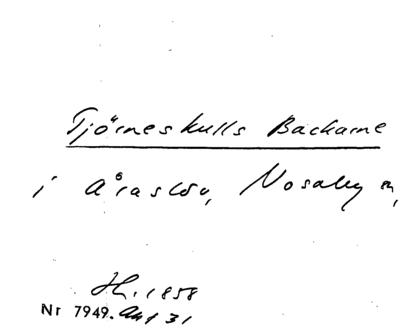 Tjörneskulls Backarne
i Åraslöv, Nosaby sn,
H. 1858
Nr 7949.